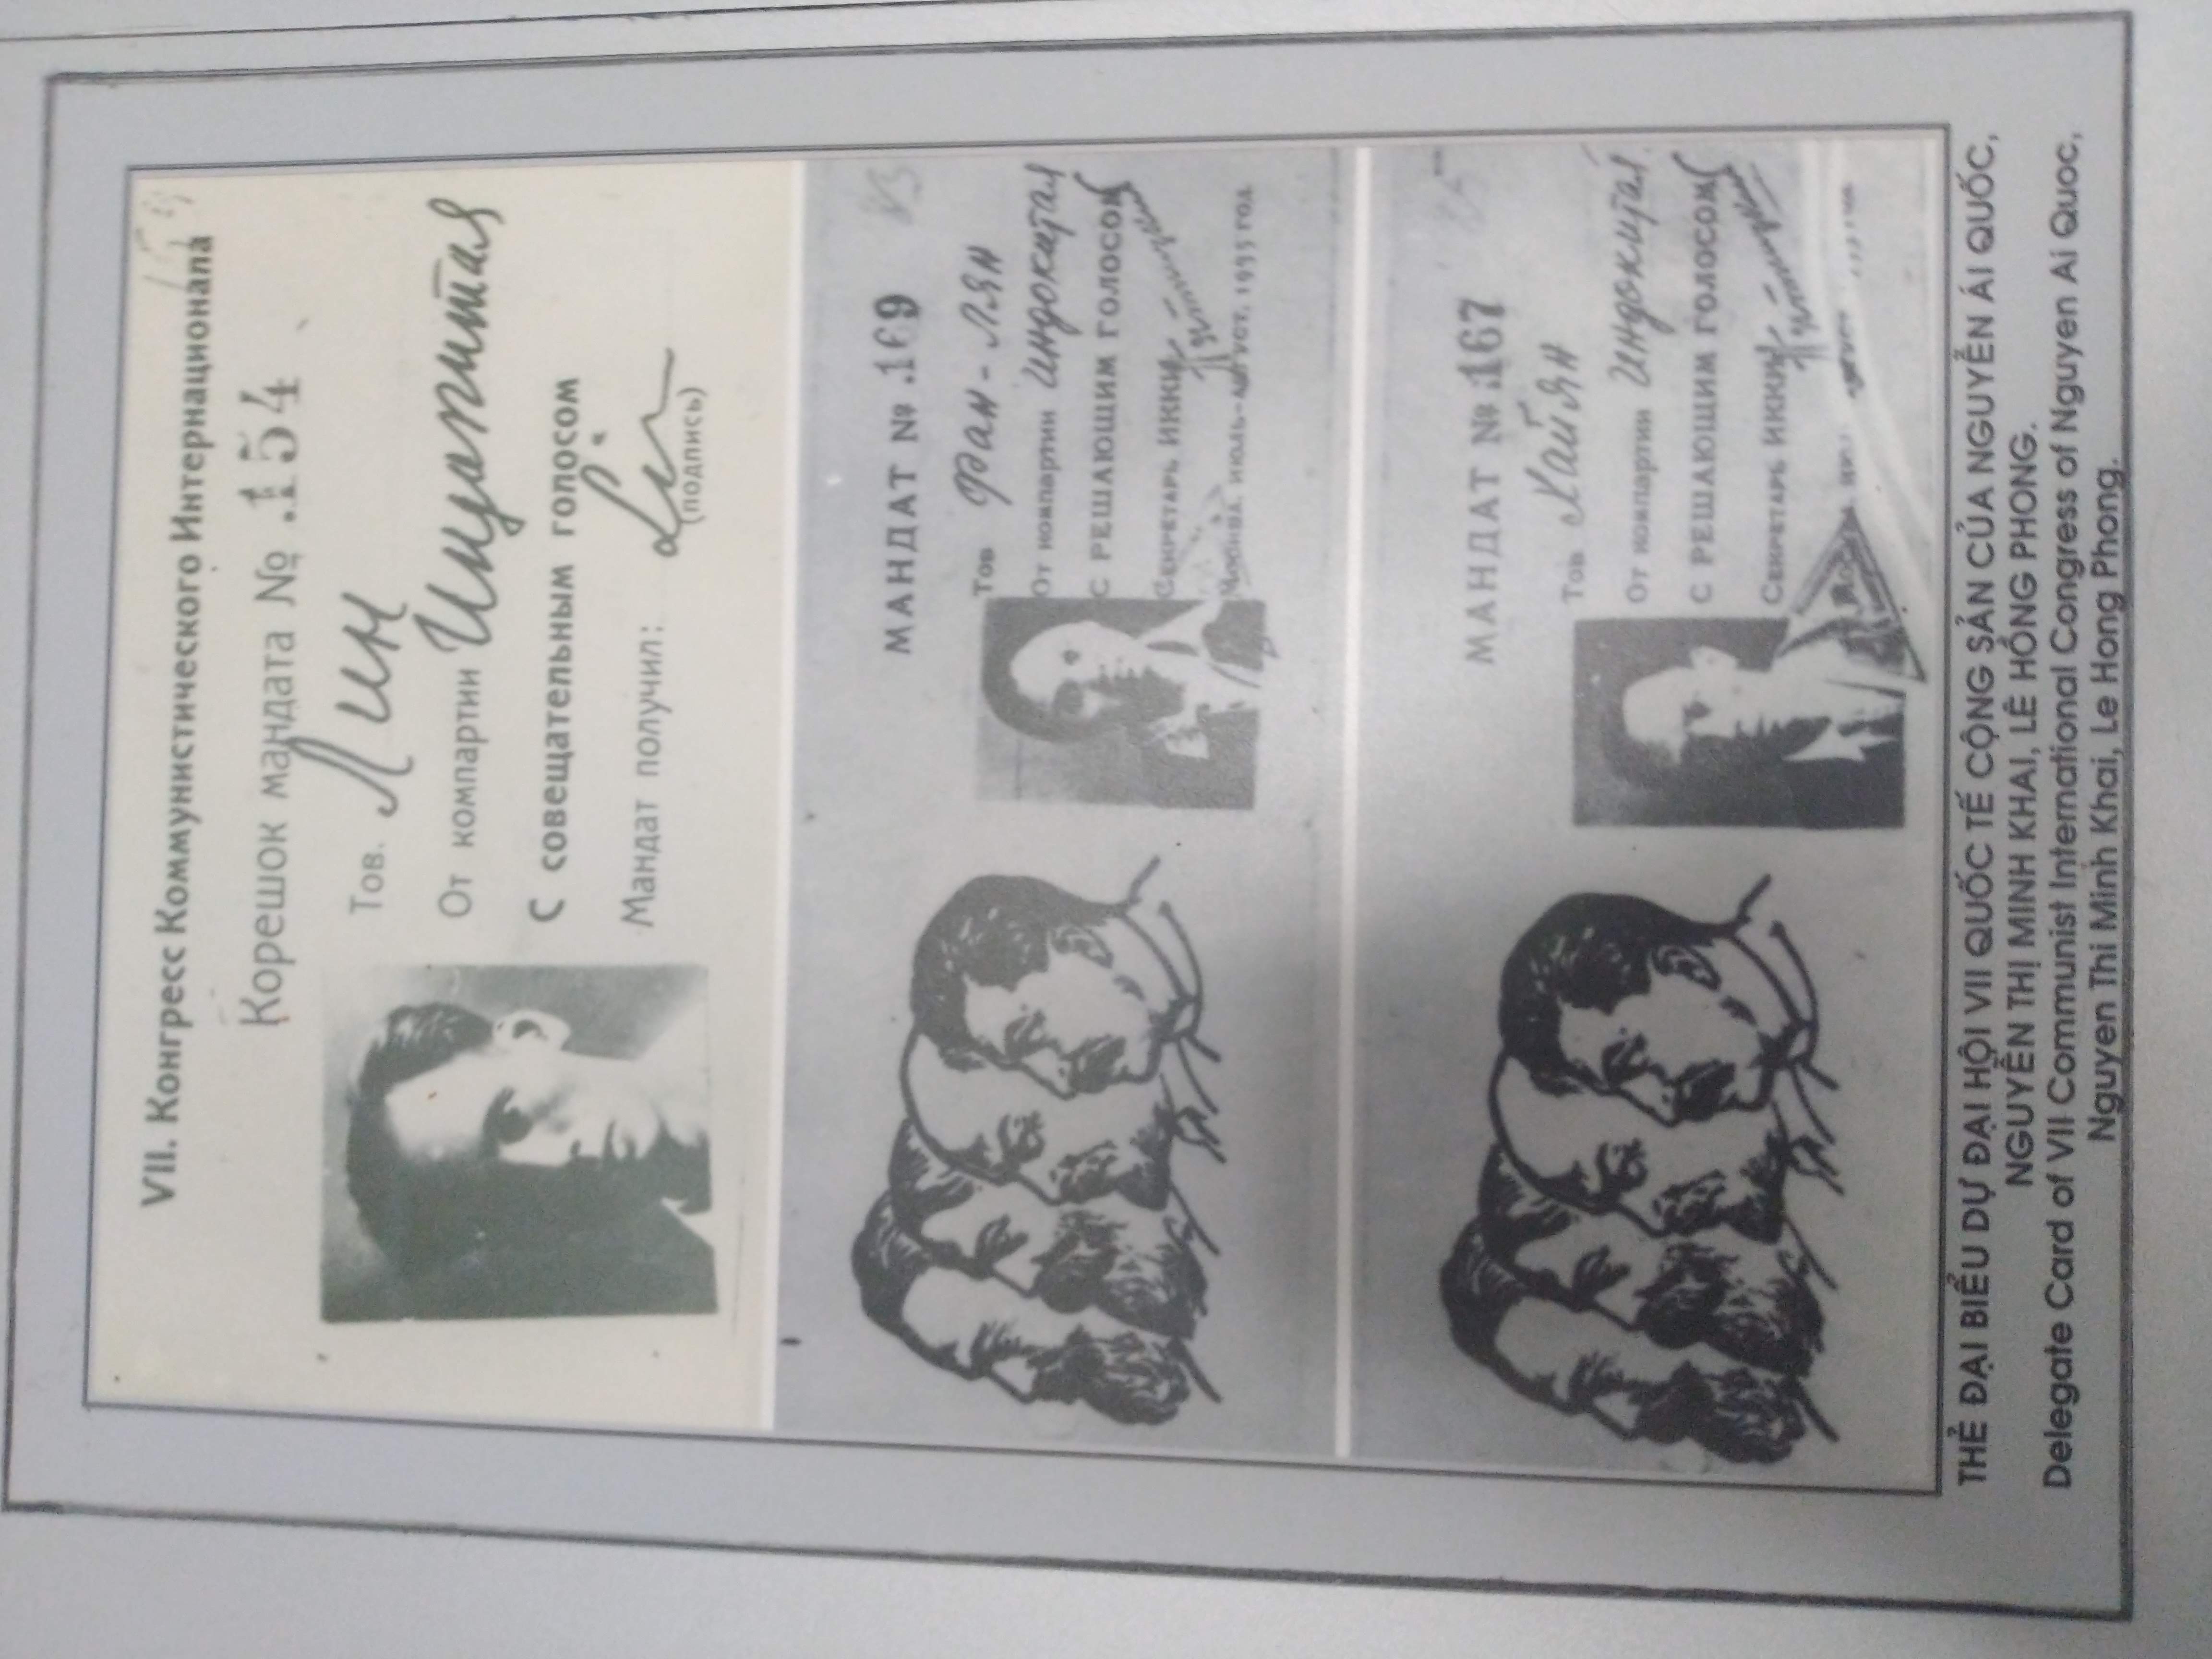 VII. Конгресс Коммунистического Интернационала
Корешок мандата № 154
Тов. Лин
От компартии Индокитая
С совещательным голосом
Мандат получил: Lin
(подпись)
МАНДАТ № 169
Тов Фан-Лян
От компартии Индокитая
С РЕШАЮЩИМ ГОЛОСОМ
СЕКРЕТАРЬ ИККИ
МОСКВА, ИЮЛЬ-АВГУСТ, 1935 ГОД
МАНДАТ № 167
Тов Хайян
От компартии Индокитая
С РЕШАЮЩИМ ГОЛОСОМ
СЕКРЕТАРЬ ИККИ
THẺ ĐẠI BIỂU DỰ ĐẠI HỘI VII QUỐC TẾ CỘNG SẢN CỦA NGUYỄN ÁI QUỐC,
NGUYỄN THỊ MINH KHAI, LÊ HỒNG PHONG.
Delegate Card of VII Communist International Congress of Nguyen Ai Quoc,
Nguyen Thi Minh Khai, Le Hong Phong.